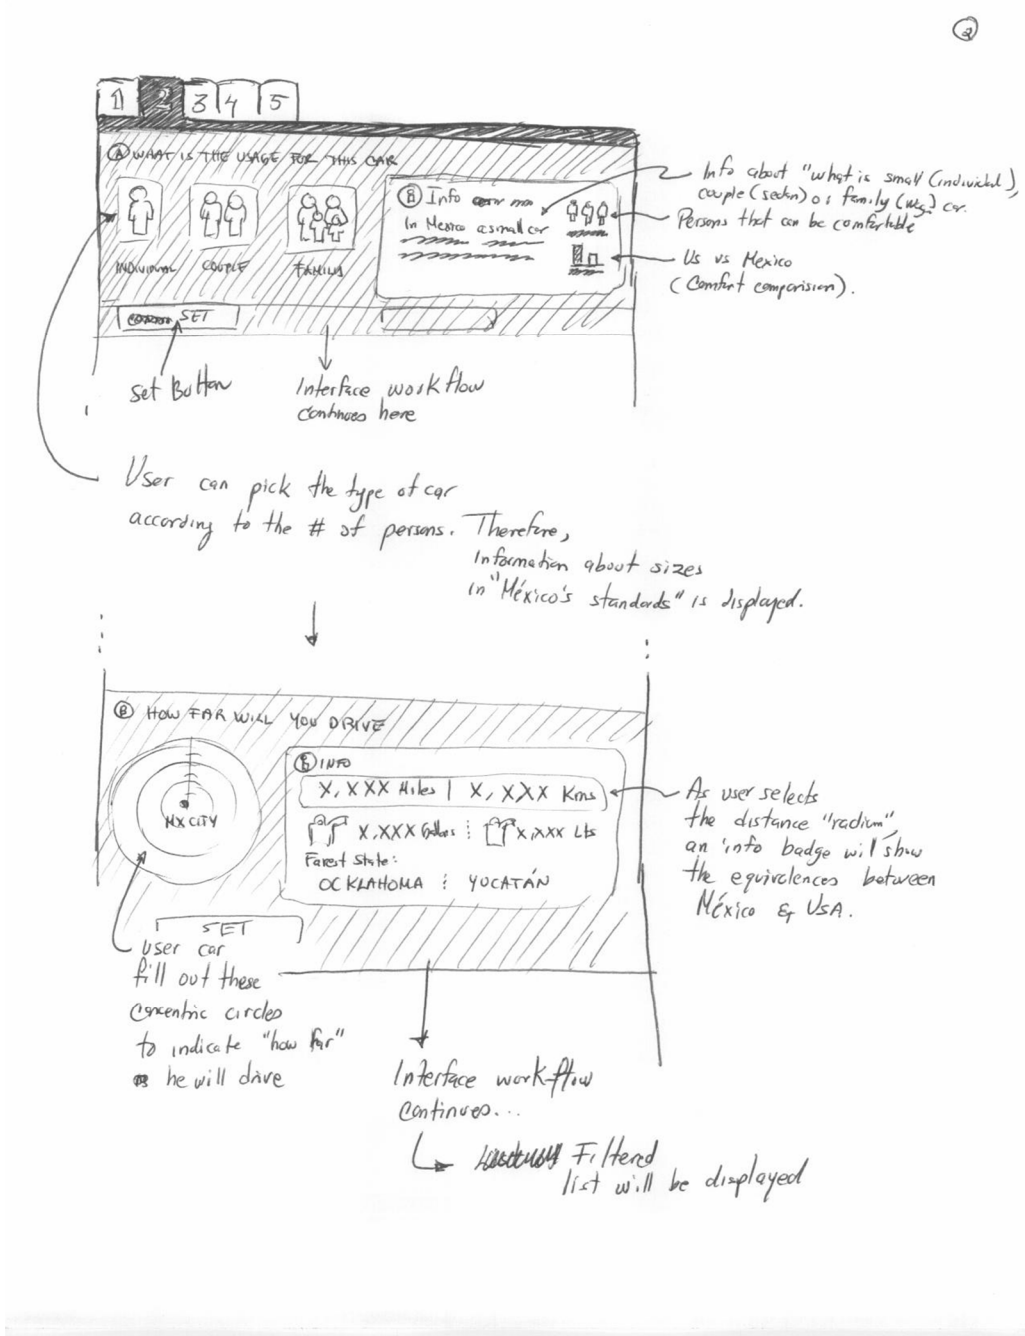 2
1 2 3 4 5
A WHAT IS THE USAGE FOR THIS CAR
INDIVIDUAL COUPLE FAMILIA
B Info
In Mexico a small car
SET
Info about "what is small (individual),
couple (sedan) or family car.
Persons that can be comfortable
Us vs Mexico
(Comfort comparision).
set Button
Interface workflow
continues here
User can pick the type of car
according to the # of persons. Therefore,
information about sizes
in "México's standards" is displayed.
B HOW FAR WILL YOU DRIVE
MX CITY
SET
INFO
X,XXX Miles | X,XXX Kms
X,XXX Gallons X,XXX Lts
Farest State:
OCKLAHOMA YUCATÁN
As user selects
the distance "radium",
an info badge will show
the equivalences between
México & USA.
User can
fill out these
concentric circles
to indicate "how far"
he will drive
Interface workflow
continues...
Filtered
list will be displayed